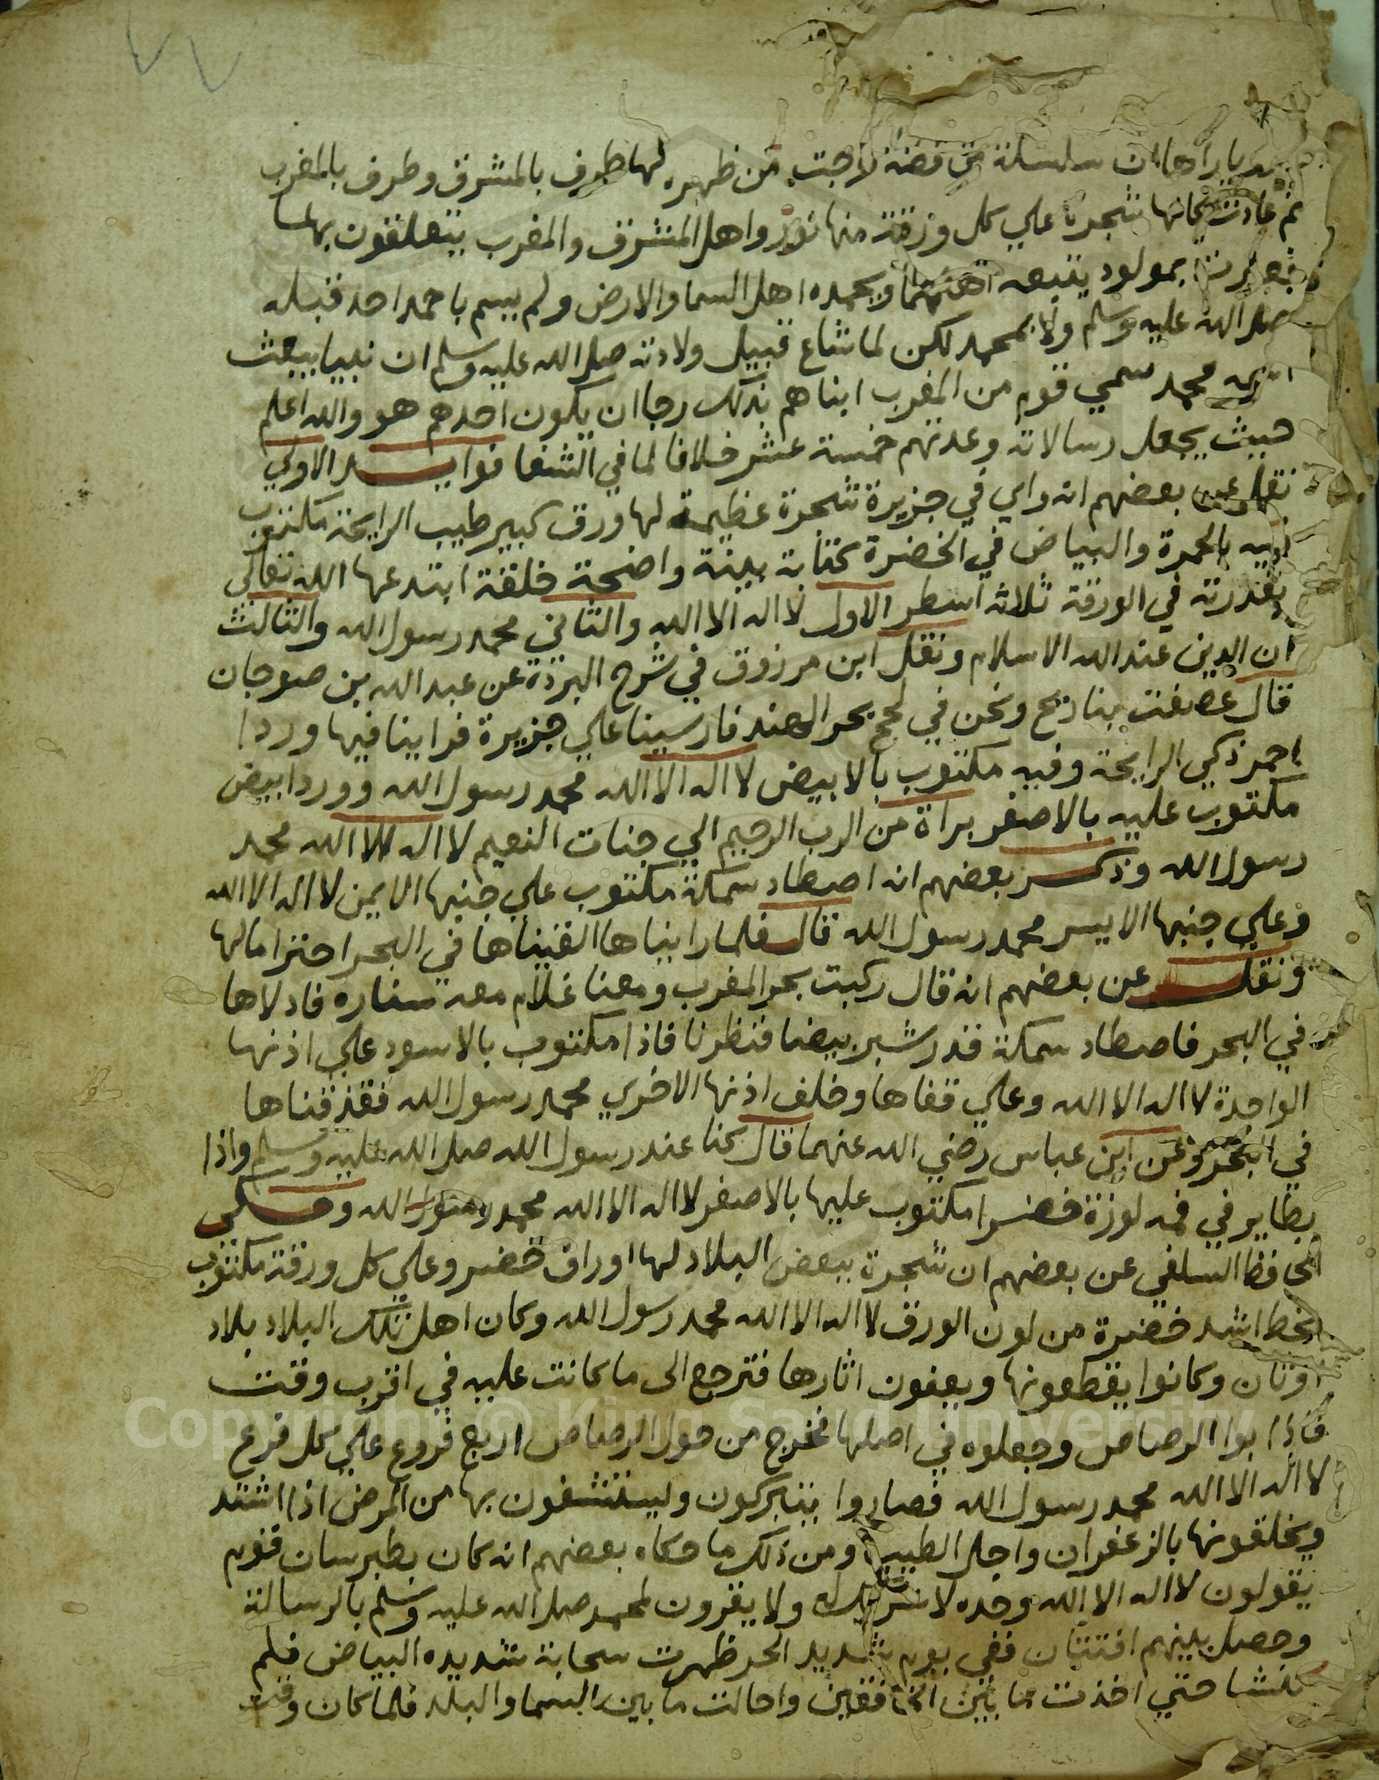 رويا راها ان سلسلة من فضة خرجت من ظهره لها طرف بالمشرق وطرف بالمغرب
ثم عادت كانها شجرة علي كل ورقة منها نور واهل المشرق والمغرب يتعلقون بها
فعبرت بمولود يتبعه اهلهما ويحمده اهل السما والارض ولم يسم باحمد احد قبله
صلى الله عليه وسلم ولا بمحمد لكن لما شاع قبيل ولادته صلى الله عليه وسلم ان نبيا يبعث
اسمه محمد سمي قوم من المغرب ابناهم بذلك رجا ان يكون احدهم هو والله اعلم
حيث يجعل رسالاته وعدتهم خمسة عشر خلافا لما في الشفا فوايد الاولي
نقل عن بعضهم انه راي في جزيرة شجرة عظيمة لها ورق كبير طيب الرايحة مكتوب
فيه بالحمرة والبياض في الخضرة كتابة بينة واضحة خلقة ابتدعها الله تعالى
بقدرته في الورقة ثلاثة اسطر الاول لا اله الا الله والثاني محمد رسول الله والثالث
ان الدين عند الله الاسلام ونقل ابن مرزوق في شرح البردة عن عبد الله بن صوحان
قال عصفت بنا ريح ونحن في لجج بحر الهند فارسينا علي جزيرة فراينا فيها وردا
احمر ذكي الرايحة وفيه مكتوب بالابيض لا اله الا الله محمد رسول الله ووردا ابيض
مكتوب عليه بالاصفر براة من الرب الرحيم الي جنات النعيم لا اله الا الله محمد
رسول الله وذكر بعضهم انه اصطاد سمكة مكتوب علي جنبها الايمن لا اله الا الله
وعلي جنبها الايسر محمد رسول الله قال فلما رايناها القيناها في البحر احتراما لها
ونقل عن بعضهم انه قال ركبت بحر المغرب ومعنا غلام معه سناره فادلاها
في البحر فاصطاد سمكة قدر شبر بيضا فنظرنا فاذا مكتوب بالاسود علي اذنها
الواحدة لا اله الا الله وعلي قفاها وخلف اذنها الاخري محمد رسول الله فقذفناها
في البحر وعن ابن عباس رضي الله عنهما قال كنا عند رسول الله صلى الله عليه وسلم واذا
بطاير في فمه لوزة خضرا مكتوب عليها بالاصفر لا اله الا الله محمد رسول الله وحكي
الحافظ السلفي عن بعضهم ان شجرة ببعض البلاد لها اوراق خضر وعلي كل ورقة مكتوب
بخط اشد خضرة من لون الورق لا اله الا الله محمد رسول الله وكان اهل تلك البلاد بلاد
اوثان وكانوا يقطعونها ويعفون اثارها فترجع الى ما كانت عليه في اقرب وقت
فاذابوا الرصاص وجعلوه في اصلها فخرج من حول الرصاص اربع فروع علي كل فرع
لا اله الا الله محمد رسول الله فصاروا يتبركون ويستشفون بها من المرض اذا اشتد
ويخلقونها بالزعفران واجل الطيب ومن ذلك ما حكاه بعضهم انه كان بطبرستان قوم
يقولون لا اله الا الله وحده لا شريك له ولا يقرون لمحمد صلى الله عليه وسلم بالرسالة
وحصل بينهم افتتان ففي يوم شديد الحر ظهرت سحابة شديده البياض فلم
تنشا حتي اخذت ما بين الخافقين واحالت ما بين السما والبلد فلما كان وقت